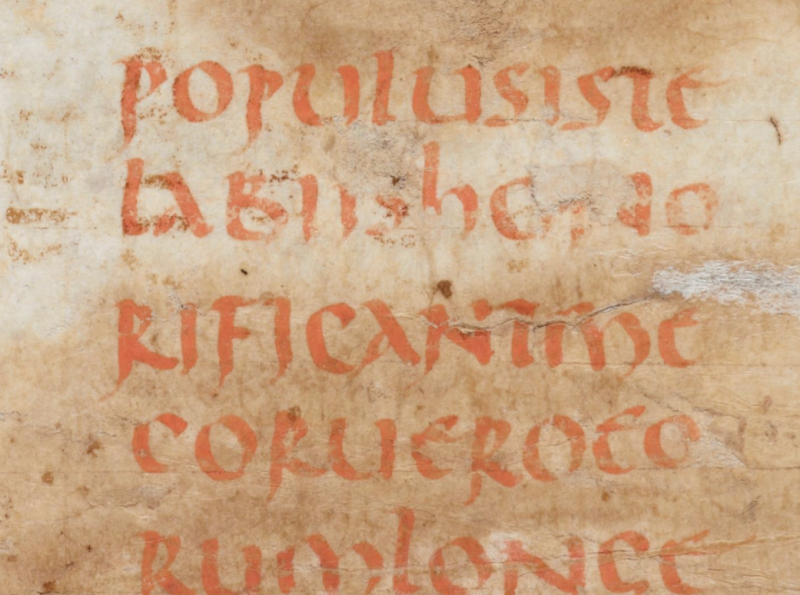 POPULUSISTE
LABIISHONO
RIFICANTME
CORUEROEO
RUMLONGE